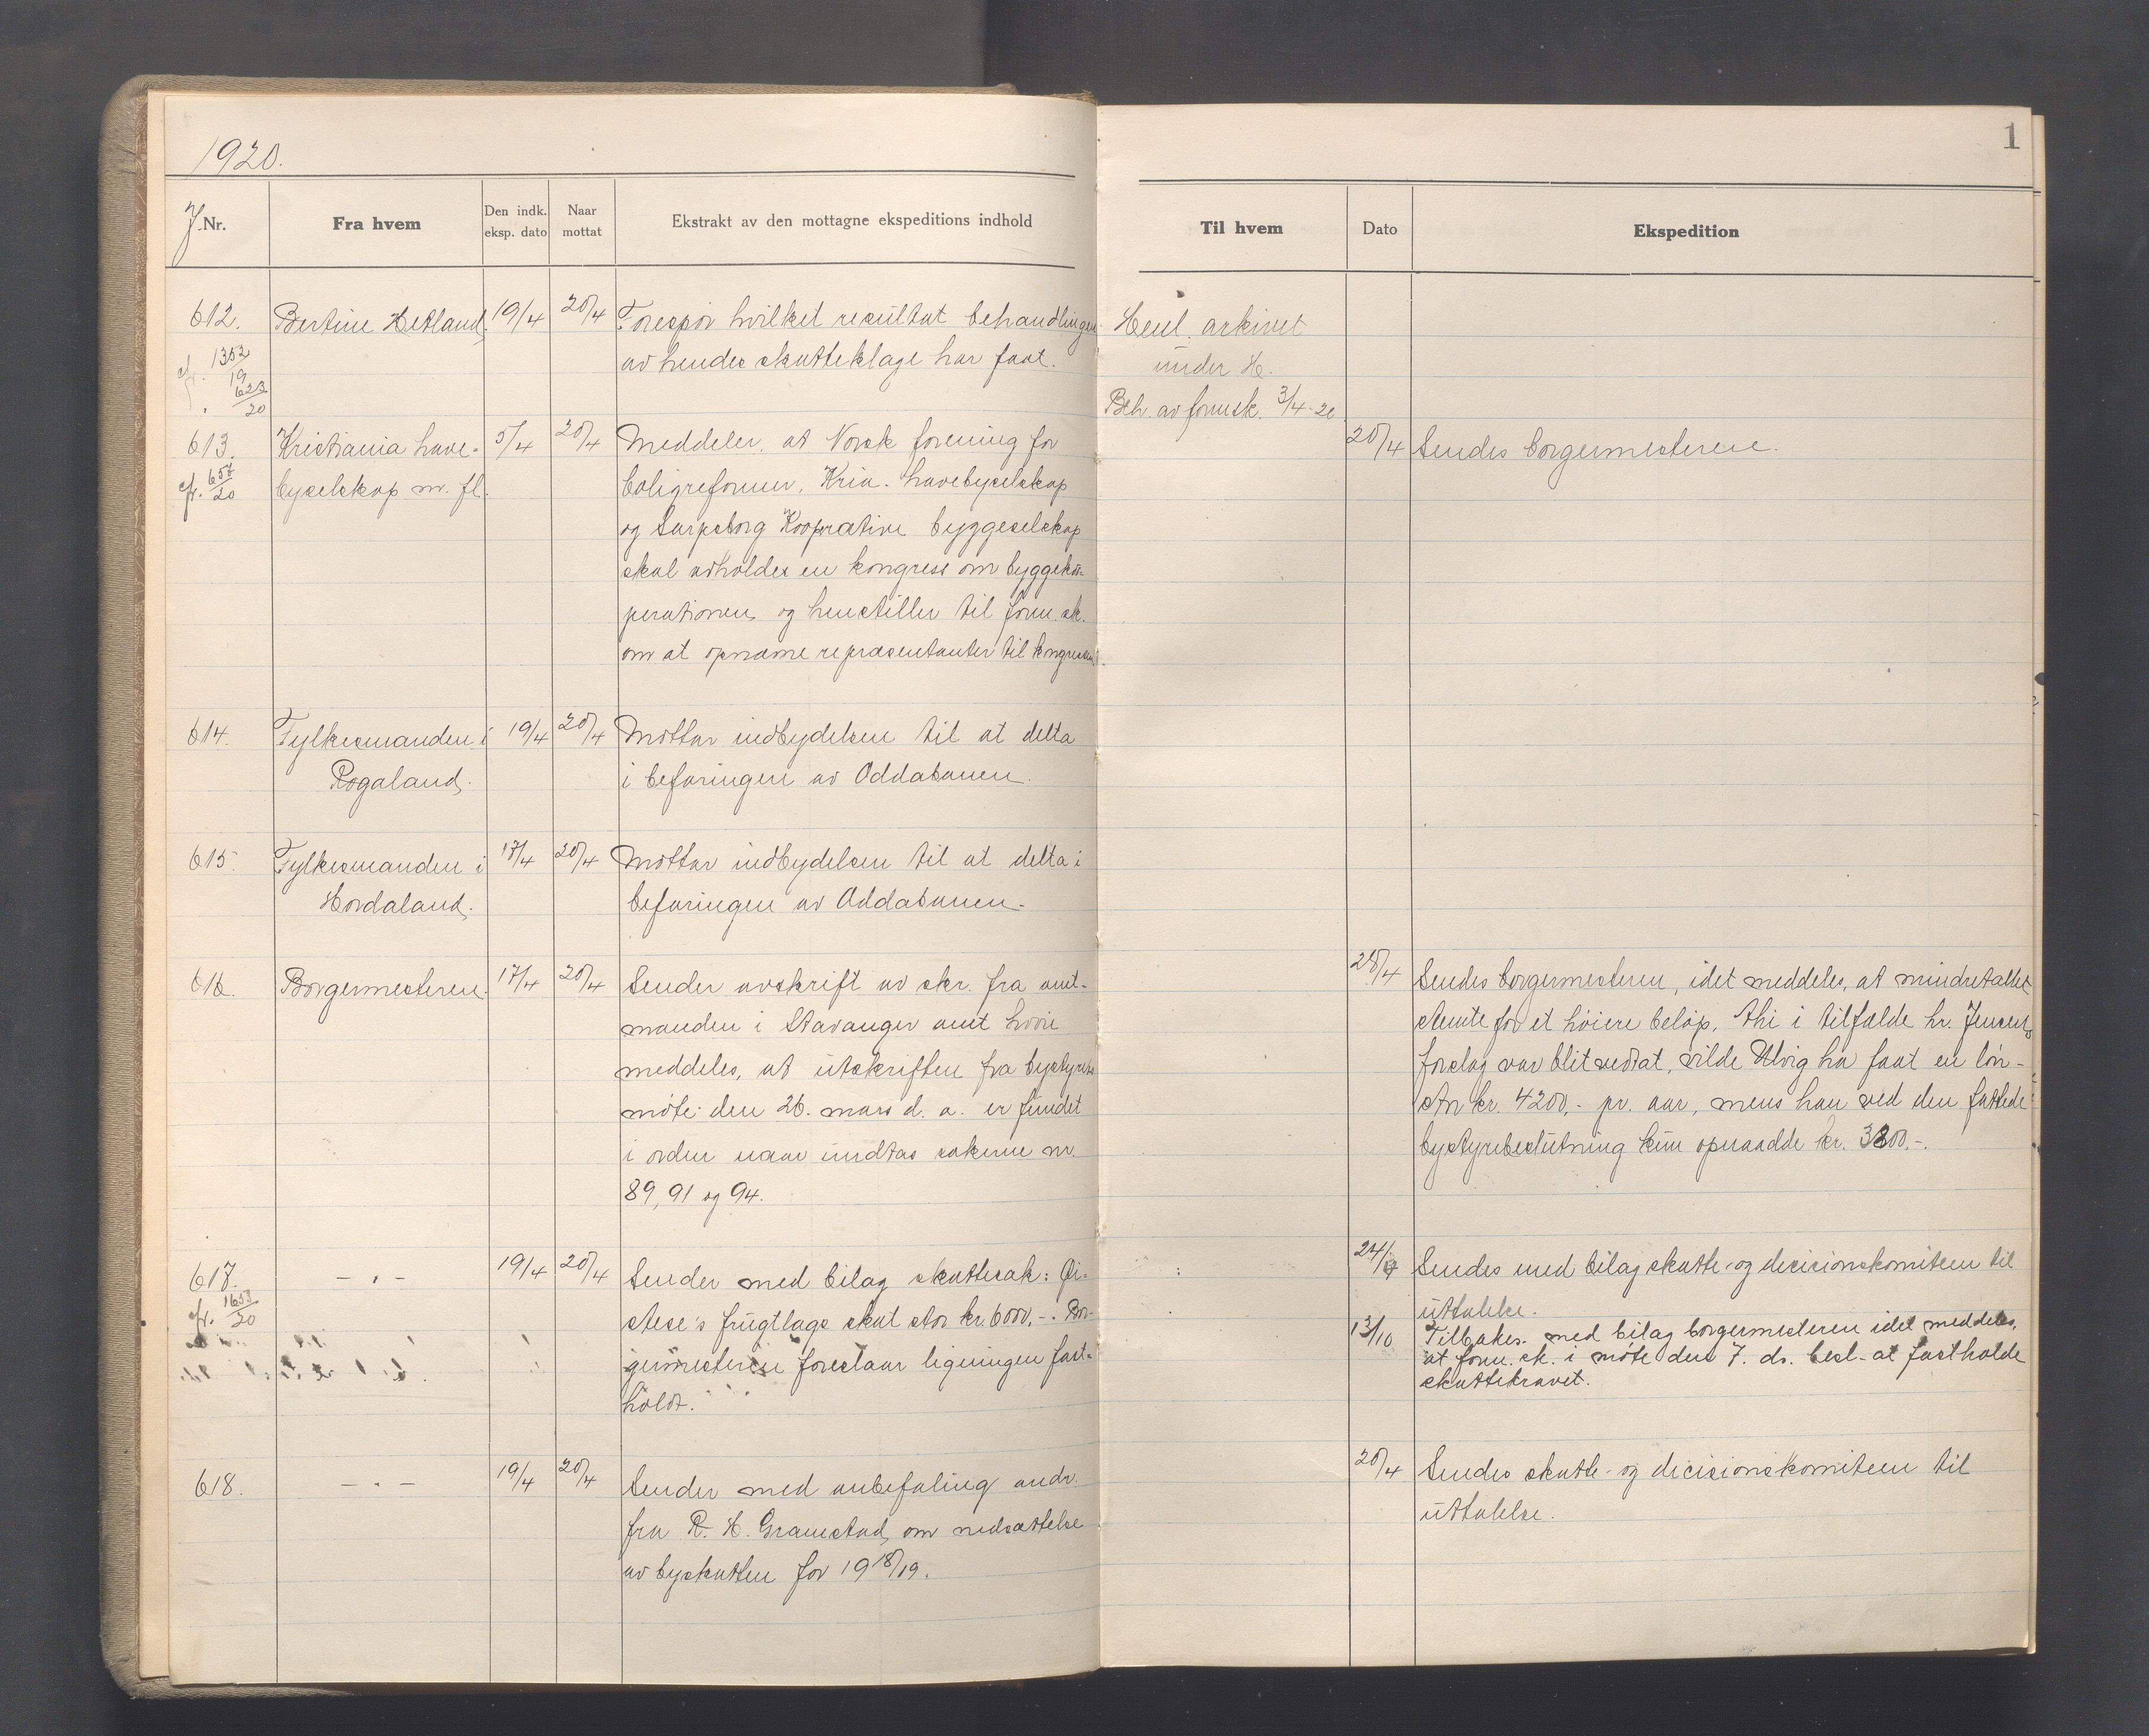 1920.
J. Nr.
Fra hvem
Den indk. eksp. dato
Naar mottat
Ekstrakt av den mottagne ekspeditions indhold
612.
cfr. 1353/19
" 623/20
Bertine Hetland.
19/4
20/4
Forespør hvilket resultat behandlingen
av hendes skatteklage har faat.
613.
cfr. 657/20
Kristiania have-
byselskap m. fl.
5/4
20/4
Meddeler, at Norsk forening for
boligreformer, Kria. havebyselskap
og Sarpsborg Kooperative byggeselskap
skal avholdes en kongress om byggekoo-
perationen og henstiller til form.sk.
om at opnævne repræsentanter til kongressen.
614.
Fylkesmanden i
Rogaland.
19/4
20/4
Mottar indbydelsen til at delta
i befaringen av Oddabanen.
615.
Fylkesmanden i
Hordaland.
17/4
20/4
Mottar indbydelsen til at delta i
befaringen av Oddabanen.
616.
Borgermesteren.
17/4
20/4
Sender avskrift av skr. fra amt-
manden i Stavanger amt hvori
meddeles, at utskriften fra bystyrets
møte den 26. mars d. a. er fundet
i orden naar undtas sakerne nr.
89, 91 og 94.
617.
cfr. 1653/20
— " —
19/4
20/4
Sender med bilag skattesak: Øi-
stese's frugtlags skat stor kr. 6000,-. Bor-
germesteren foreslaar ligningen fast-
holdt.
618.
— " —
19/4
20/4
Sender med anbefaling andr.
fra R. H. Gramstad, om nedsættelse
av byskatten for 1918/19.
1
Til hvem
Dato
Ekspedition
Henl. arkivet
under H.
Beh. av formsk. 3/4-20
20/4
Sendes borgermesteren.
28/4
Sendes borgermesteren, idet meddeles, at mindretallet
stemte for et høiere beløp, thi i tilfælde hr. Jensens
forslag var blit vedtat, vilde Ulvig ha faat en løn
stor kr. 4200,- pr. aar, mens han ved den fattede
bystyrebeslutning kun opnaadde kr. 3800,-.
24/4
Sendes med bilag skatte- og decisionskomiteen til
uttalelse.
13/10
Tilbakes. med bilag borgermesteren idet meddeles,
at form. sk. i møte den 7. ds. besl. at fastholde
skattekravet.
20/4
Sendes skatte- og decisionskomiteen til
uttalelse.